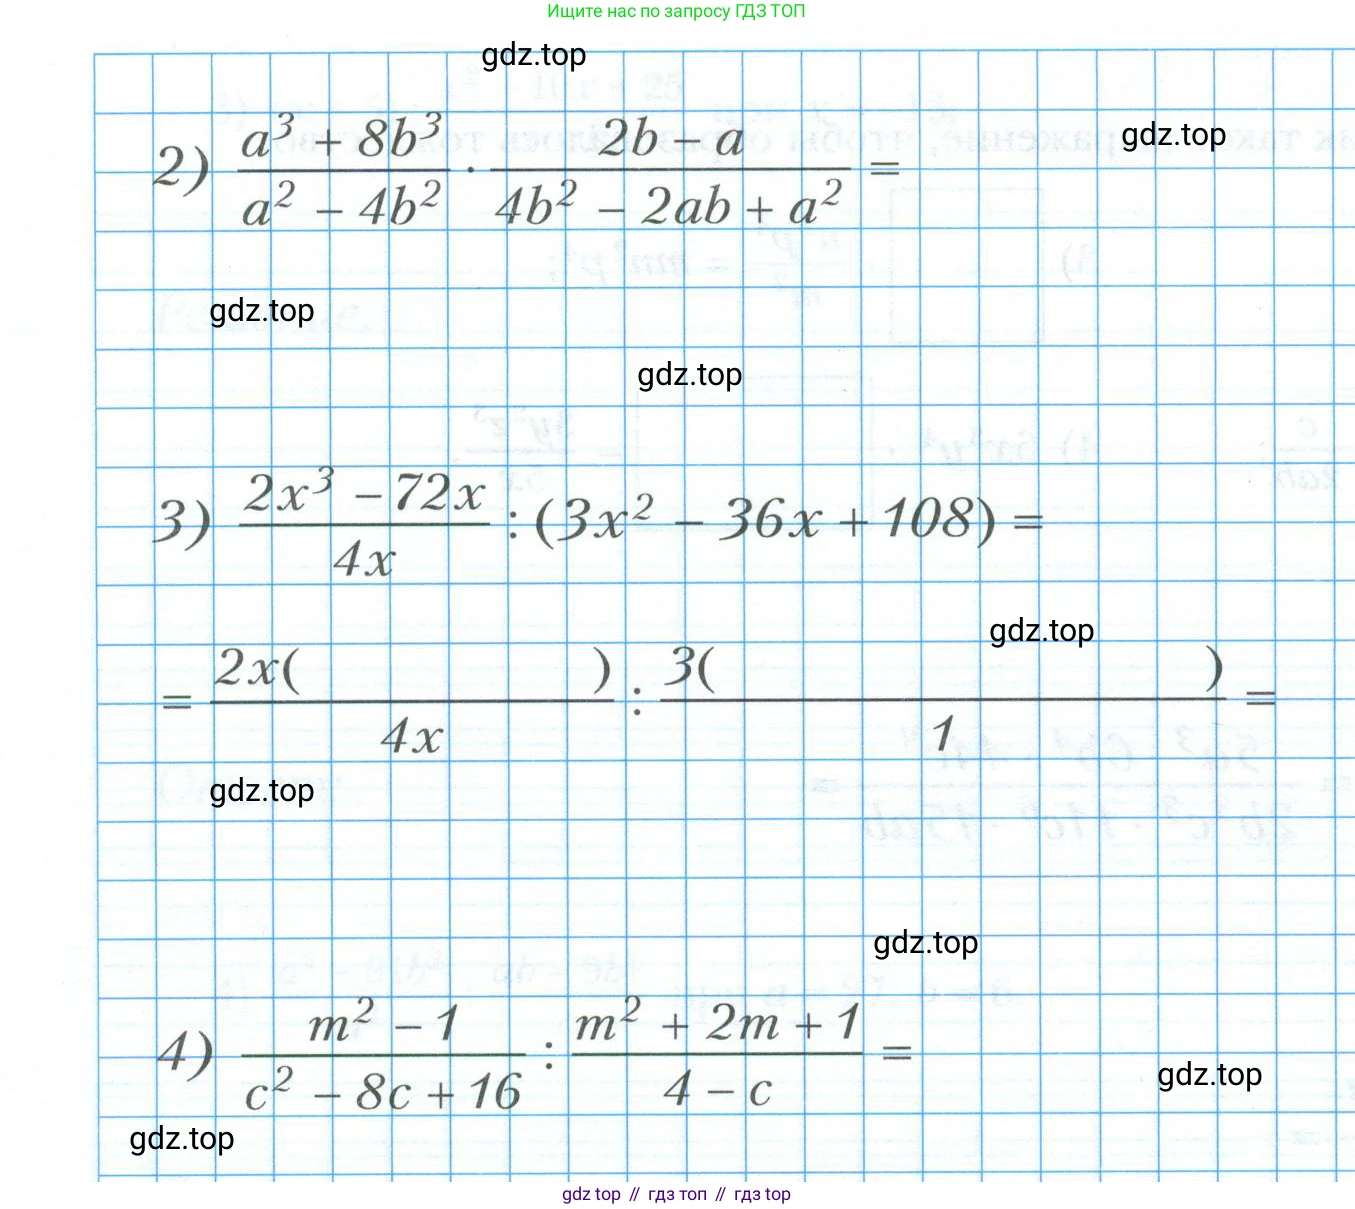 Ищите нас по запросу ГДЗ ТОП
gdz.top
gdz.top
2) \frac{a^3 + 8b^3}{a^2 - 4b^2} \cdot \frac{2b - a}{4b^2 - 2ab + a^2} =
gdz.top
gdz.top
3) \frac{2x^3 - 72x}{4x} : (3x^2 - 36x + 108) =
gdz.top
= \frac{2x( )}{4x} : \frac{3( )}{1} =
gdz.top
gdz.top
4) \frac{m^2 - 1}{c^2 - 8c + 16} : \frac{m^2 + 2m + 1}{4 - c} =
gdz.top
gdz.top
gdz top // гдз топ // gdz top